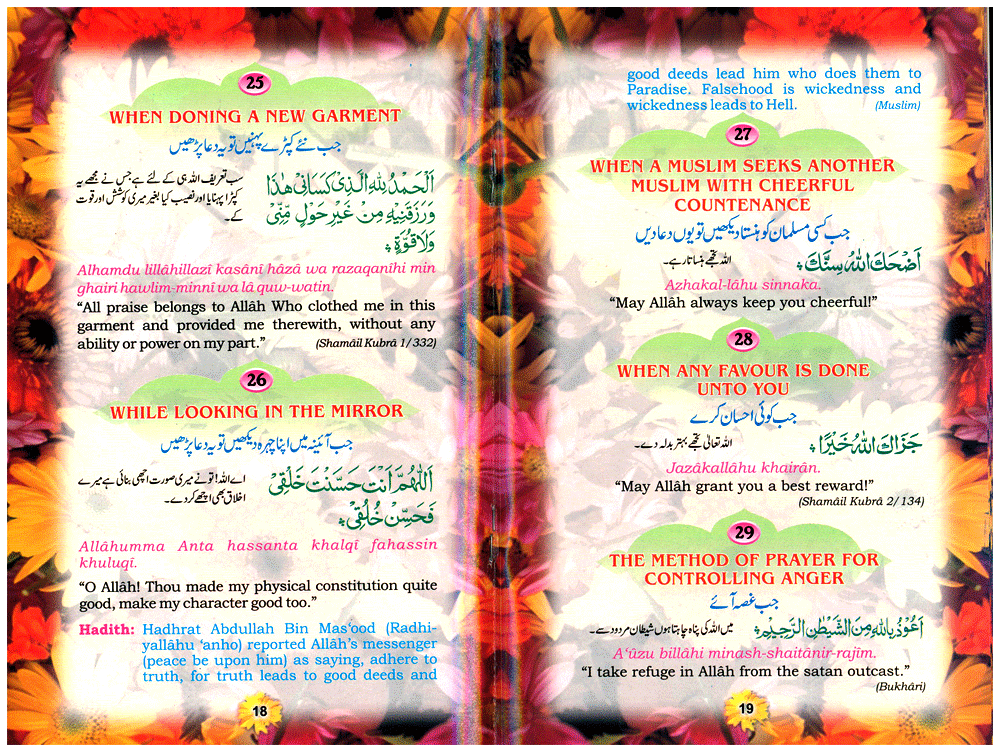 25
WHEN DONING A NEW GARMENT
جب نئے کپڑے پہنیں تو یہ دعا پڑھیں
اَلْحَمْدُ لِلّٰہِ الَّذِیْ کَسَانِیْ ھٰذَا
وَرَزَقَنِیْہِ مِنْ غَیْرِ حَوْلٍ مِّنِّیْ
وَلَا قُوَّۃٍ
سب تعریف اللہ ہی کے لئے ہے جس نے مجھے یہ
کپڑا پہنایا اور نصیب کیا بغیر میری کوشش اور قوت
کے۔
Alhamdu lillâhillazî kasânî hâzâ wa razaqanîhi min
ghairi hawlim-minnî wa lâ quw-watin.
“All praise belongs to Allâh Who clothed me in this
garment and provided me therewith, without any
ability or power on my part.” (Shamâil Kubrâ 1/332)
26
WHILE LOOKING IN THE MIRROR
جب آئینہ میں اپنا چہرہ دیکھیں تو یہ دعا پڑھیں
اَللّٰھُمَّ اَنْتَ حَسَّنْتَ خَلْقِیْ
فَحَسِّنْ خُلُقِیْ
اے اللہ! تو نے میری صورت اچھی بنائی ہے میرے
اخلاق بھی اچھے کر دے۔
Allâhumma Anta hassanta khalqî fahassin
khuluqî.
“O Allâh! Thou made my physical constitution quite
good, make my character good too.”
Hadith: Hadhrat Abdullah Bin Mas‘ood (Radhi-
yallâhu ‘anho) reported Allâh’s messenger
(peace be upon him) as saying, adhere to
truth, for truth leads to good deeds and
18
good deeds lead him who does them to
Paradise. Falsehood is wickedness and
wickedness leads to Hell. (Muslim)
27
WHEN A MUSLIM SEEKS ANOTHER
MUSLIM WITH CHEERFUL
COUNTENANCE
جب کسی مسلمان کو ہنستا دیکھیں تو یوں دعا دیں
اَضْحَکَ اللّٰہُ سِنَّکَ اللہ تجھے ہنساتا رہے۔
Azhakal-lâhu sinnaka.
“May Allâh always keep you cheerful!”
28
WHEN ANY FAVOUR IS DONE
UNTO YOU
جب کوئی احسان کرے
جَزَاکَ اللّٰہُ خَیْرًا اللہ تعالیٰ تجھے بہتر بدلہ دے۔
Jazâkallâhu khairân.
“May Allâh grant you a best reward!”
(Shamâil Kubrâ 2/134)
29
THE METHOD OF PRAYER FOR
CONTROLLING ANGER
جب غصہ آئے
اَعُوْذُ بِاللّٰہِ مِنَ الشَّیْطٰنِ الرَّجِیْمِ میں اللہ کی پناہ چاہتا ہوں شیطان مردود سے۔
A‘ûzu billâhi minash-shaitânir-rajîm.
“I take refuge in Allâh from the satan outcast.”
(Bukhâri)
19